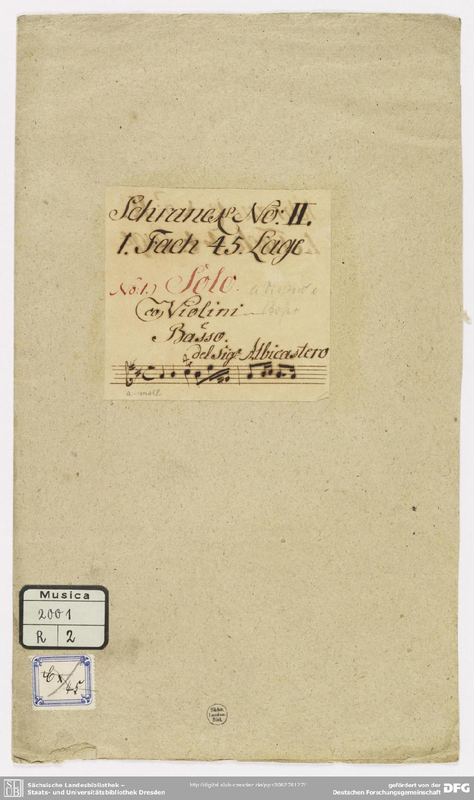 Schranck No: II.
1. Fach 45. Lage
No: 1.) Solo.
con Violini
e
Basso.
del Sigr. Albicastero
a-moll
Musica
2001
R 2
Cx
45
Sächs.
Landes-
Bibl.
Sächsische Landesbibliothek –
Staats- und Universitätsbibliothek Dresden
gefördert von der
Deutschen Forschungsgemeinschaft
DFG